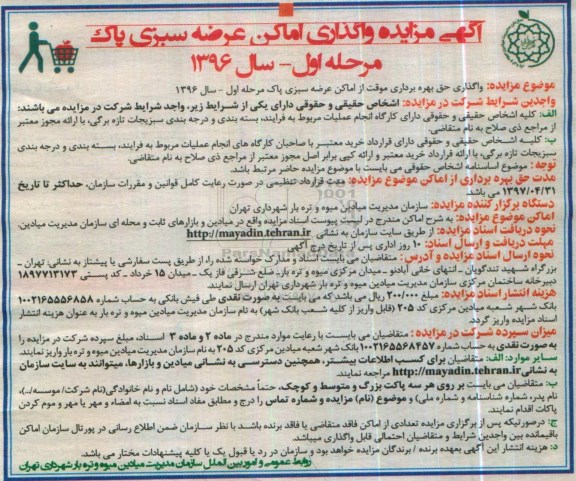 آگهی مزایده واگذاری اماکن عرضه سبزی پاک
مرحله اول - سال ۱۳۹۶
موضوع مزایده: واگذاری حق بهره برداری موقت از اماکن عرضه سبزی پاک مرحله اول - سال ۱۳۹۶
واجدین شرایط شرکت در مزایده: اشخاص حقیقی و حقوقی دارای یکی از شرایط زیر، واجد شرایط شرکت در مزایده می باشند:
الف: کلیه اشخاص حقیقی و حقوقی دارای کارگاه انجام عملیات مربوط به فرایند، بسته بندی و درجه بندی سبزیجات تازه برگی، با ارائه مجوز معتبر
از مراجع ذی صلاح به نام متقاضی.
ب: کلیه اشخاص حقیقی و حقوقی دارای قرارداد خرید معتبر با صاحبان کارگاه های انجام عملیات مربوط به فرایند، بسته بندی و درجه بندی
سبزیجات تازه برگی، با ارائه قرارداد خرید معتبر و ارائه کپی برابر اصل مجوز معتبر از مراجع ذی صلاح به نام متقاضی.
توجه: موضوع اساسنامه اشخاص حقوقی می بایست با موضوع مزایده حاضر مرتبط باشد.
مدت حق بهره برداری از اماکن موضوع مزایده: مدت قرارداد تنظیمی در صورت رعایت کامل قوانین و مقررات سازمان، حداکثر تا تاریخ
۱۳۹۷/۰۴/۳۱ می باشد.
دستگاه برگزار کننده مزایده: سازمان مدیریت میادین میوه و تره بار شهرداری تهران
اماکن موضوع مزایده: به شرح اماکن مندرج در لیست پیوست اسناد مزایده واقع در میادین و بازارهای ثابت و محله ای سازمان مدیریت میادین.
نحوه دریافت اسناد مزایده: از طریق سایت سازمان به نشانی http://mayadin.tehran.ir
مهلت دریافت و ارسال اسناد: ۱۰ روز اداری پس از تاریخ درج آگهی
نحوه ارسال اسناد مزایده و آدرس: متقاضیان می بایست اسناد و مدارک خواسته شده را از طریق پست سفارشی یا پیشتاز به نشانی: تهران -
بزرگراه شهید تندگویان - انتهای خانی آبادنو - میدان مرکزی میوه و تره بار - ضلع شرقی فاز یک - میدان ۱۵ خرداد - کد پستی ۱۸۹۷۷۱۳۱۷۳
دبیرخانه ساختمان مرکزی سازمان مدیریت میادین میوه و تره بار شهرداری تهران ارسال نمایند.
هزینه انتشار اسناد مزایده: مبلغ ۲۰۰/۰۰۰ ریال می باشد که می بایست به صورت نقدی طی فیش بانکی به حساب شماره ۱۰۰۲۱۶۵۵۵۶۸۵۸
بانک شهر شعبه میادین مرکزی کد ۲۰۵ (قابل واریز از کلیه شعب بانک شهر) به نام سازمان مدیریت میادین میوه و تره بار به عنوان هزینه انتشار
اسناد مزایده واریز گردد.
میزان سپرده شرکت در مزایده: متقاضیان می بایست با رعایت موارد مندرج در ماده ۲ و ماده ۳ اسناد، مبلغ سپرده شرکت در مزایده را
به صورت نقدی به حساب شماره ۱۰۰۲۱۶۵۵۶۸۴۵۷ بانک شهر شعبه میادین مرکزی کد ۲۰۵ به نام سازمان مدیریت میادین میوه و تره بار واریز نمایند.
سایر موارد: الف: متقاضیان برای کسب اطلاعات بیشتر، همچنین دسترسی به نشانی میادین و بازارها، میتوانند به سایت سازمان
به نشانی http://mayadin.tehran.ir مراجعه نمایند.
ب: متقاضیان می بایست بر روی هر سه پاکت بزرگ و متوسط و کوچک، حتماً مشخصات خود (شامل نام و نام خانوادگی (نام شرکت/ موسسه/..)،
نام پدر، شماره شناسنامه و شماره ملی) و موضوع (نام) مزایده و شماره تماس را درج و مطابق مفاد اسناد نسبت به امضاء و مهر یا مهر و موم کردن
پاکات اقدام نمایند.
ج: درصورتیکه پس از برگزاری مزایده تعدادی از اماکن فاقد متقاضی یا فاقد برنده باشد با نظر سازمان ضمن اطلاع رسانی در پورتال سازمان اماکن
باقیمانده بین واجدین شرایط و متقاضیان احتمالی قابل واگذاری میباشد.
د: هزینه انتشار این آگهی بعهده برنده / برندگان مزایده خواهد بود و سازمان در رد یا قبول یک یا کلیه پیشنهادات مختار می باشد.
روابط عمومی و امور بین الملل سازمان مدیریت میادین میوه و تره بار شهرداری تهران